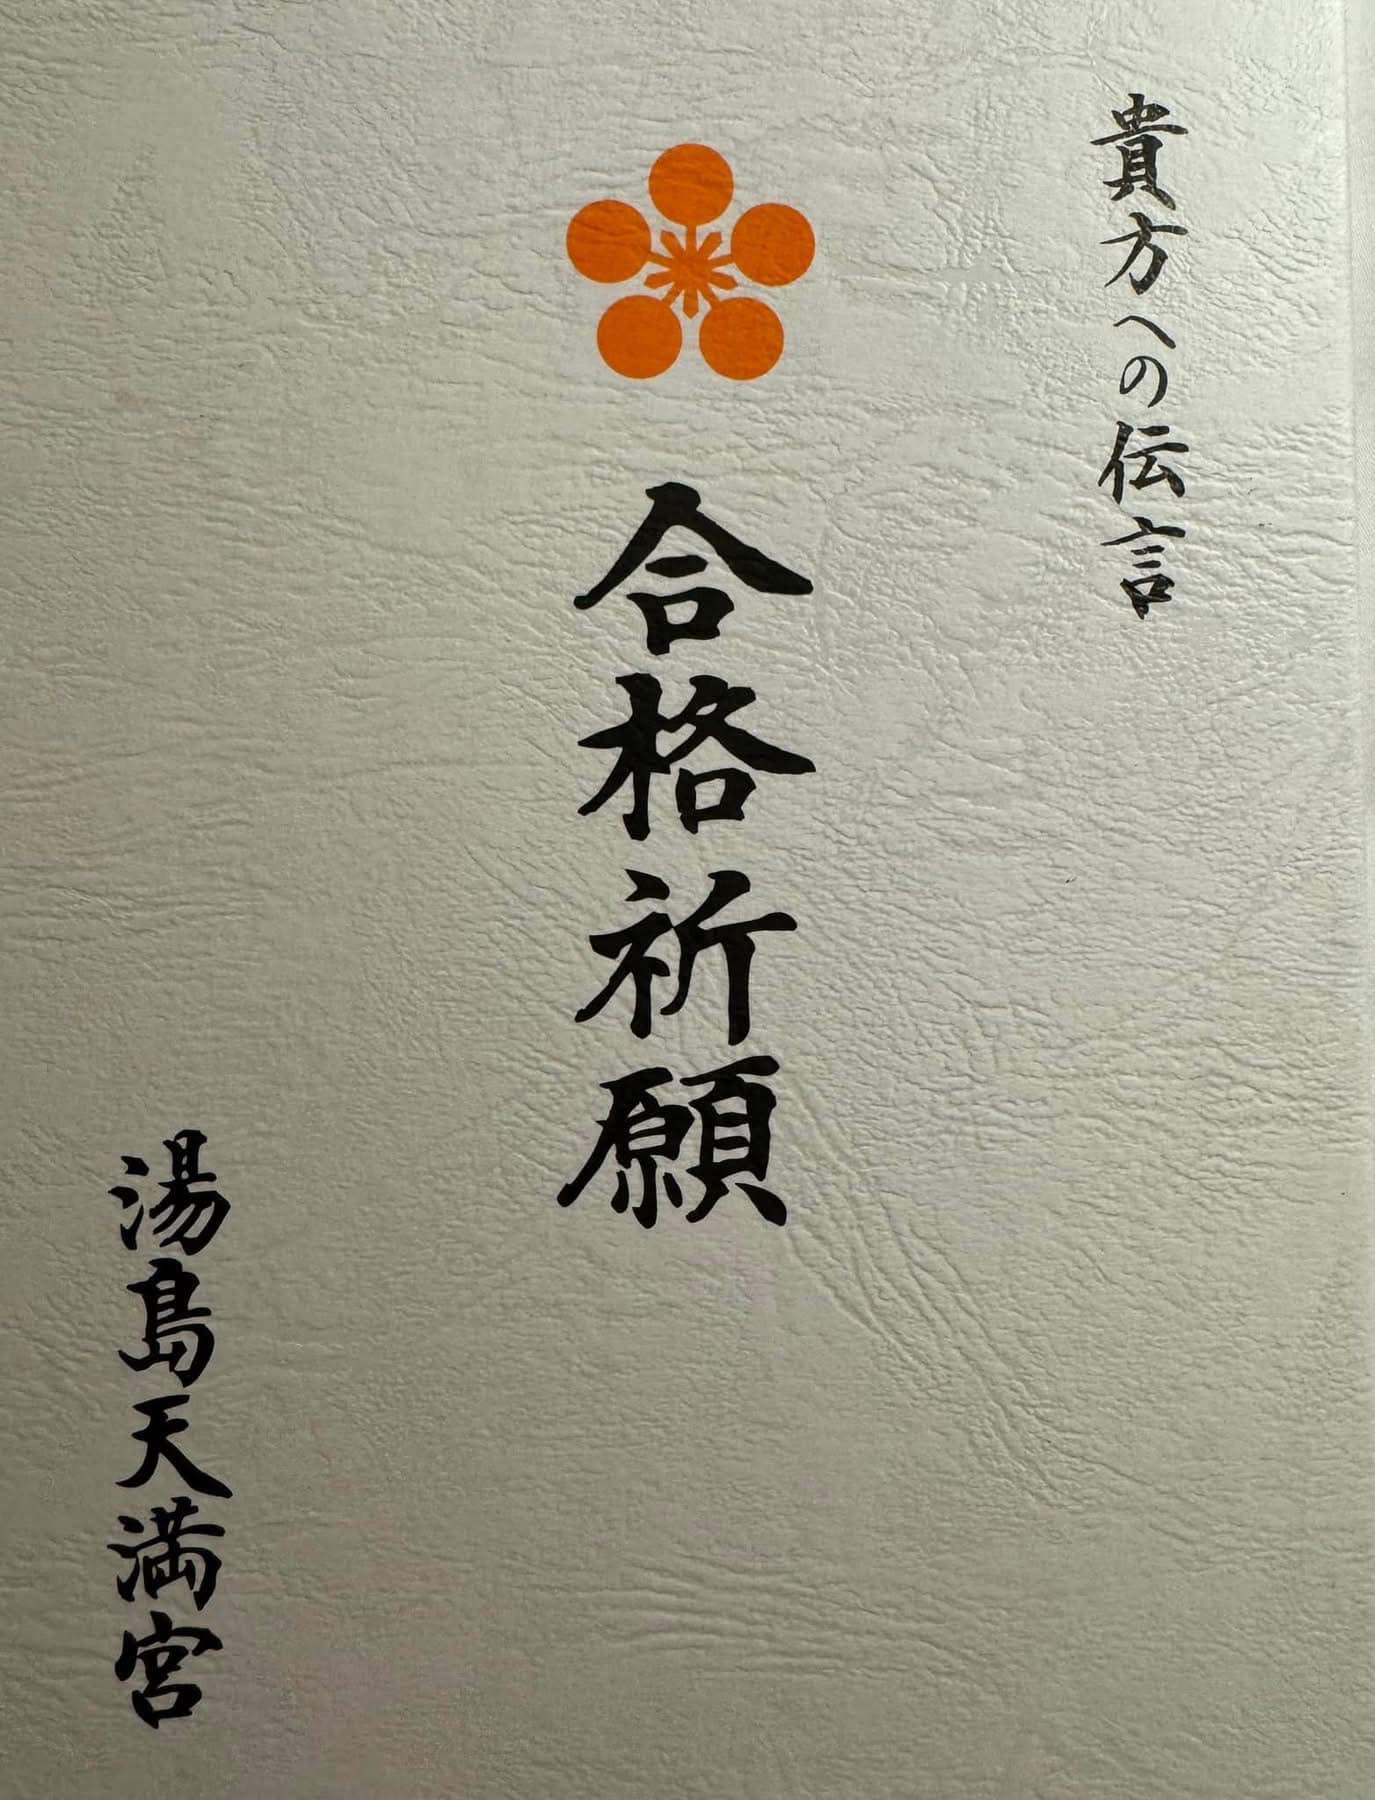 貴方への伝言
合格祈願
湯島天満宮